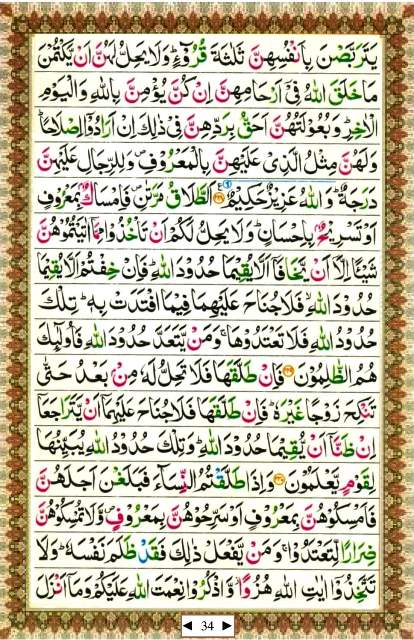 يَتَرَبَّصْنَ بِاَنْفُسِهِنَّ ثَلٰثَةَ قُرُوْٓءٍ ؕ وَلَا يَحِلُّ لَهُنَّ اَنْ يَّكْتُمْنَ
مَا خَلَقَ اللّٰهُ فِيْٓ اَرْحَامِهِنَّ اِنْ كُنَّ يُؤْمِنَّ بِاللّٰهِ وَالْيَوْمِ
الْاٰخِرِ ؕ وَبُعُوْلَتُهُنَّ اَحَقُّ بِرَدِّهِنَّ فِيْ ذٰلِكَ اِنْ اَرَادُوْٓا اِصْلَاحًا ؕ
وَلَهُنَّ مِثْلُ الَّذِيْ عَلَيْهِنَّ بِالْمَعْرُوْفِ ۪ وَلِلرِّجَالِ عَلَيْهِنَّ
دَرَجَةٌ ؕ وَاللّٰهُ عَزِيْزٌ حَكِيْمٌ ۟ اَلطَّلَاقُ مَرَّتٰنِ ۪ فَاِمْسَاكٌۢ بِمَعْرُوْفٍ
اَوْ تَسْرِيْحٌۢ بِاِحْسَانٍ ؕ وَلَا يَحِلُّ لَكُمْ اَنْ تَاْخُذُوْا مِمَّآ اٰتَيْتُمُوْهُنَّ
شَيْـًٔا اِلَّآ اَنْ يَّخَافَآ اَلَّا يُقِيْمَا حُدُوْدَ اللّٰهِ ؕ فَاِنْ خِفْتُمْ اَلَّا يُقِيْمَا
حُدُوْدَ اللّٰهِ ۙ فَلَا جُنَاحَ عَلَيْهِمَا فِيْمَا افْتَدَتْ بِهٖ ؕ تِلْكَ
حُدُوْدُ اللّٰهِ فَلَا تَعْتَدُوْهَا ۚ وَمَنْ يَّتَعَدَّ حُدُوْدَ اللّٰهِ فَاُولٰٓئِكَ
هُمُ الظّٰلِمُوْنَ ۟ فَاِنْ طَلَّقَهَا فَلَا تَحِلُّ لَهٗ مِنْۢ بَعْدُ حَتّٰى
تَنْكِحَ زَوْجًا غَيْرَهٗ ؕ فَاِنْ طَلَّقَهَا فَلَا جُنَاحَ عَلَيْهِمَآ اَنْ يَّتَرَاجَعَآ
اِنْ ظَنَّآ اَنْ يُّقِيْمَا حُدُوْدَ اللّٰهِ ؕ وَتِلْكَ حُدُوْدُ اللّٰهِ يُبَيِّنُهَا
لِقَوْمٍ يَّعْلَمُوْنَ ۟ وَاِذَا طَلَّقْتُمُ النِّسَآءَ فَبَلَغْنَ اَجَلَهُنَّ
فَاَمْسِكُوْهُنَّ بِمَعْرُوْفٍ اَوْ سَرِّحُوْهُنَّ بِمَعْرُوْفٍ ۪ وَّلَا تُمْسِكُوْهُنَّ
ضِرَارًا لِّتَعْتَدُوْا ۚ وَمَنْ يَّفْعَلْ ذٰلِكَ فَقَدْ ظَلَمَ نَفْسَهٗ ؕ وَلَا
تَتَّخِذُوْٓا اٰيٰتِ اللّٰهِ هُزُوًا ۫ وَّاذْكُرُوْا نِعْمَتَ اللّٰهِ عَلَيْكُمْ وَمَآ اَنْزَلَ
◄ 34 ►